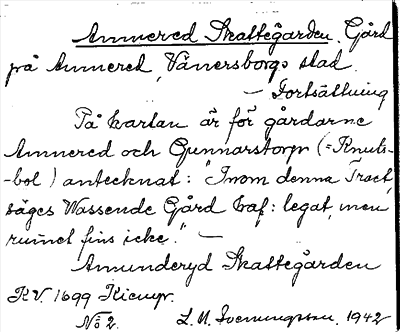 Annered Skattegården. Gård
på Annered, Vänersborgs stad.
— Fortsättning
På kartan är för gårdarne
Annered och Gunnarstorp (= Knuts-
-bol) antecknat: "Inom denna Tract,
säges Wassende Gård haf: legat, men
rumet fins icke." —
Amunderyd Skattegården
RV 1699 Kiempr.
No 2. L. M. Svenungsson. 1942